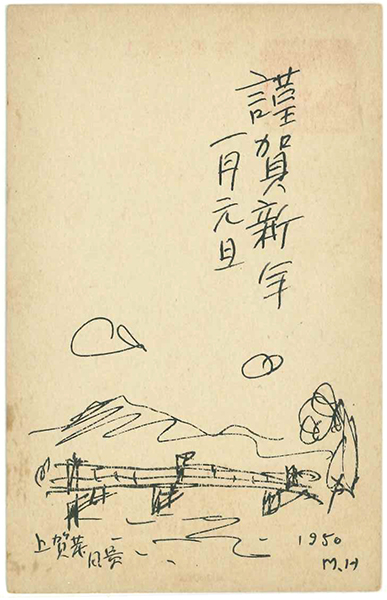 謹賀新年
一月元旦
上賀茂
風景
1950
M.H